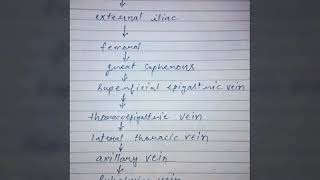 external iliac
femoral
great saphenous
superficial epigastric vein
thoracoepigastric vein
lateral thoracic vein
axillary vein